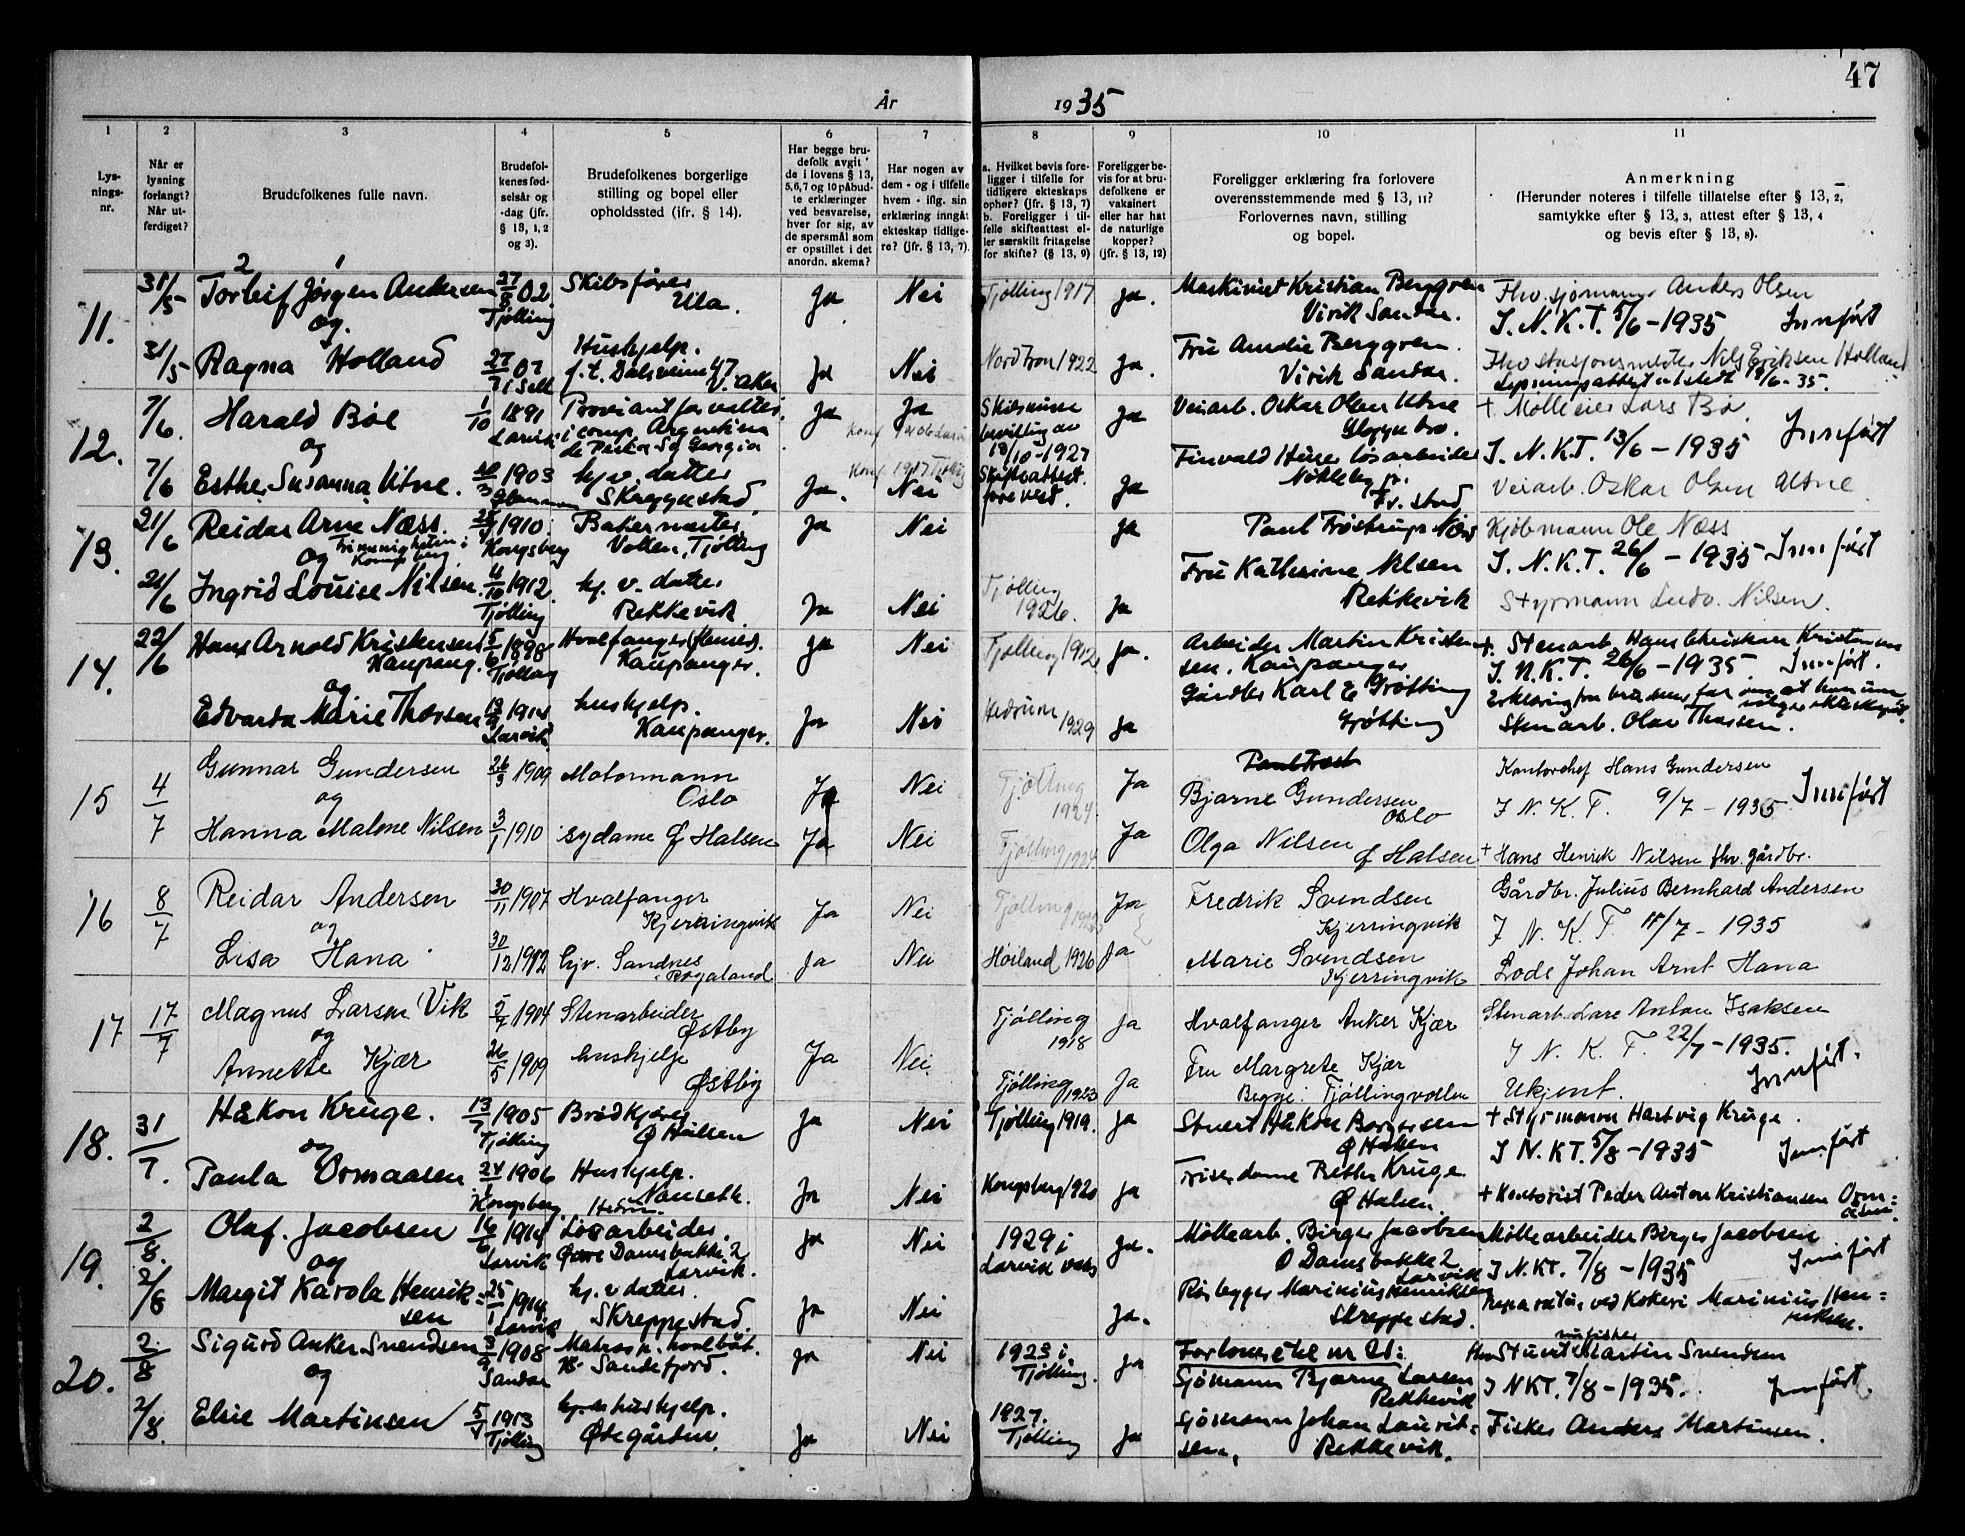 47
År 1935
1 2 3 4 5 6 7 8 9 10 11
Lysnings-nr.
Når er lysning forlangt? Når utferdiget?
Brudefolkenes fulle navn.
Brudefolkenes fødselsår og -dag (jfr. § 13, 1, 2 og 3).
Brudefolkenes borgerlige stilling og bopel eller opholdssted (jfr. § 14).
Har begge brudefolk avgitt de i lovens § 13, 5, 6, 7 og 10 påbudte erklæringer ved besvarelse, hver for sig, av de spørsmål som er opstillet i det anordn. skema?
Har nogen av dem - og i tilfelle hvem - iflg. sin erklæring inngåt ekteskap tidligere? (jfr. § 13, 7).
a. Hvilket bevis foreligger i tilfelle for tidligere ekteskaps ophør? (jfr. § 13, 7) b. Foreligger i tilfelle skifteattest eller særskilt fritagelse for skifte? (§ 13, 9)
Foreligger bevis for at brudefolkene er vaksinert eller har hat de naturlige kopper? (jfr. § 13, 12)
Foreligger erklæring fra forlovere overensstemmende med § 13, 11? Forlovernes navn, stilling og bopel.
Anmerkning (Herunder noteres i tilfelle tillatelse efter § 13, 2, samtykke efter § 13, 3, attest efter § 13, 4 og bevis efter § 13, 8).
11. 31/5 Torleif Jørgen Andersen 27/8 02 Tjølling Skibsfører Ula. Ja Nei Tjølling 1917 Ja. Maskinist Kristian Berggren Virik Sandar. Fhv. sjømann Anders Olsen
og I. N. K. T. 5/6 - 1935 Innført
31/5 Ragna Holland 27/7 07 i Sell Hushjelp. f. t. Dalsveien 47 V. Aker Ja Nei Nord Fron 1922 Ja. Fru Amelie Berggren Virik Sandar. Fhv stasjonsmester Nils Eriksen Holland
Lysningsattest utstedt 18/6 - 35.
12. 7/6. Harald Bøe 1/10 1891 Larvik Proviantforvalter i comp. Argentina de Pesca Sd Georgia Ja Ja Skilsmisse bevilling av 18/10 - 1927 Ja Veiarb. Oskar Olsen Utne + Mølleeier Lars Bø
og I. N. K. T. 13/6 - 1935 Innført
7/6 Esther Susanna Utne. 1903 hjv. datter Skreppestad. Ja. Konf. 1917 Tjølling Nei Skifteattest forevist. Ja Løsarbeider Fr. stad Veiarb. Oskar Olsen Utne
13. 21/6 Reidar Arne Næss 1910 Kongsberg Bakermester Vollen, Tjølling Ja Nei Ja Paul Trøstrup Næss Kjøbmann Ole Næss
og I. N. K. T. 26/6 - 1935 Innført
21/6 Ingrid Louise Nilsen 4/10 1912. Tjølling hj. v. datter Rekkevik Ja Nei Tjølling 1926. Ja Fru Kathrine Nilsen Rekkevik Styrmann Ludv. Nilsen.
14. 22/6 Hans Arnold Kristensen Kaupang. 5/6 1898 Tjølling Hvalfanger Kaupanger. Ja Nei Tjølling 1912 Ja. Arbeider Martin Kristensen, Kaupanger +. Stenarb. Hans Christian Kristensen
og I. N. K. T. 26/6 - 1935 Innført.
Edvarda Marie Thorsen 1914 Larvik hushjelp. Kaupanger. Ja Nei Hedrum 1929 Ja Gårdbr Karl E Grøtting Grøtting Stenarb. Olav Thorsen.
15 4/7 Gunnar Gundersen 26/3 1909 Motormann Oslo Ja Nei Tjølling 1924. Ja Bjarne Gundersen Oslo Kontorchef Hans Gundersen
og I N. K. T. 9/7 - 1935 Innført
Hanna Malene Nilsen 3/1 1910 sydame Ø Halsen Ja Nei Tjølling 1924 Ja Olga Nilsen Ø Halsen + Hans Henrik Nilsen fhv. gårdbr.
16 8/7 Reidar Andersen 30/11 1907 Hvalfanger Kjerringvik Ja Nei Tjølling Ja Fredrik Svendsen Kjerringvik Gårdbr. Julius Bernhard Andersen
og I N. K. T. 11/7 - 1935
Lisa Hana 30/12 1912 hjv. Sandnes Rogaland Ja Nei Høiland 1926 Ja Marie Svendsen Kjerringvik Lods Johan Arnt Hana
17 17/7 Magnus Larsen Vik 1904 Stenarbeider Østby Ja Nei. Tjølling 1918 Ja Hvalfanger Anker Kjær Stenarb Lars Anton Isaksen
og I N. K. T. 22/7 - 1935. Innført.
Annette Kjær 26/5 1909 hushjelp Østby Tjølling 1923 Ja Fru Margrete Kjær Begge: Tjøllingvollen Ukjent.
18. 31/7. Håkon Kruge. 13/7 1905 Tjølling Brødkjører Ø Halsen Ja Nei Tjølling 1919. Ja Stuert Håkon Borgersen Ø Halsen + Styrmann Hartvig Kruge.
og I N. K T. 5/8 - 1935 Innført
Paula Ormaasen 24/1 1906 Kongsberg Hushjelp. Nanseth. Hedrum. Ja Nei Kongsberg 1920 Ja Frisørdame Kruge Ø Halsen. + Kontorist Peder Anton Kristiansen Ormaasen.
19. 2/8. Olaf Jacobsen 16/6 1914 Larvik Løsarbeider. Øvre Damsbakke 2 Larvik. Ja Nei 1929 i Larvik vaks Ja. Møllearb. Birger Jacobsen Ø Damsbakke 2 Larvik Møllearbeider Birger Jacobsen
og I N. KT. 7/8 - 1935 Innført
2/8 Margit Karola Henriksen 25/1 1914 Larvik hj. v datter. Skreppestad. Ja Nei Ja. Rørlegger Marinius Henriksen Skreppestad. Reparatør ved Kokeri Marinius Henriksen.
20. 2/8 Sigurd Anker Svendsen 3/9 1908 Sandar Matros p. hvalbåt. Sandefjord. Ja Nei 1923 i Tjølling. Ja Forlovere til nr 21: Sjømann Bjarne Larsen Rekkevik fhv Stuert Martin Svendsen
og I NKT. 7/8 - 1935. Innført.
2/8. Elsie Martinsen 1913 Tjølling hushjelp. Ødegården. Ja Nei 1927. Tjølling Ja Sjømann Johan Lauritsen, Rekkevik. Fisker Anders Martinsen.